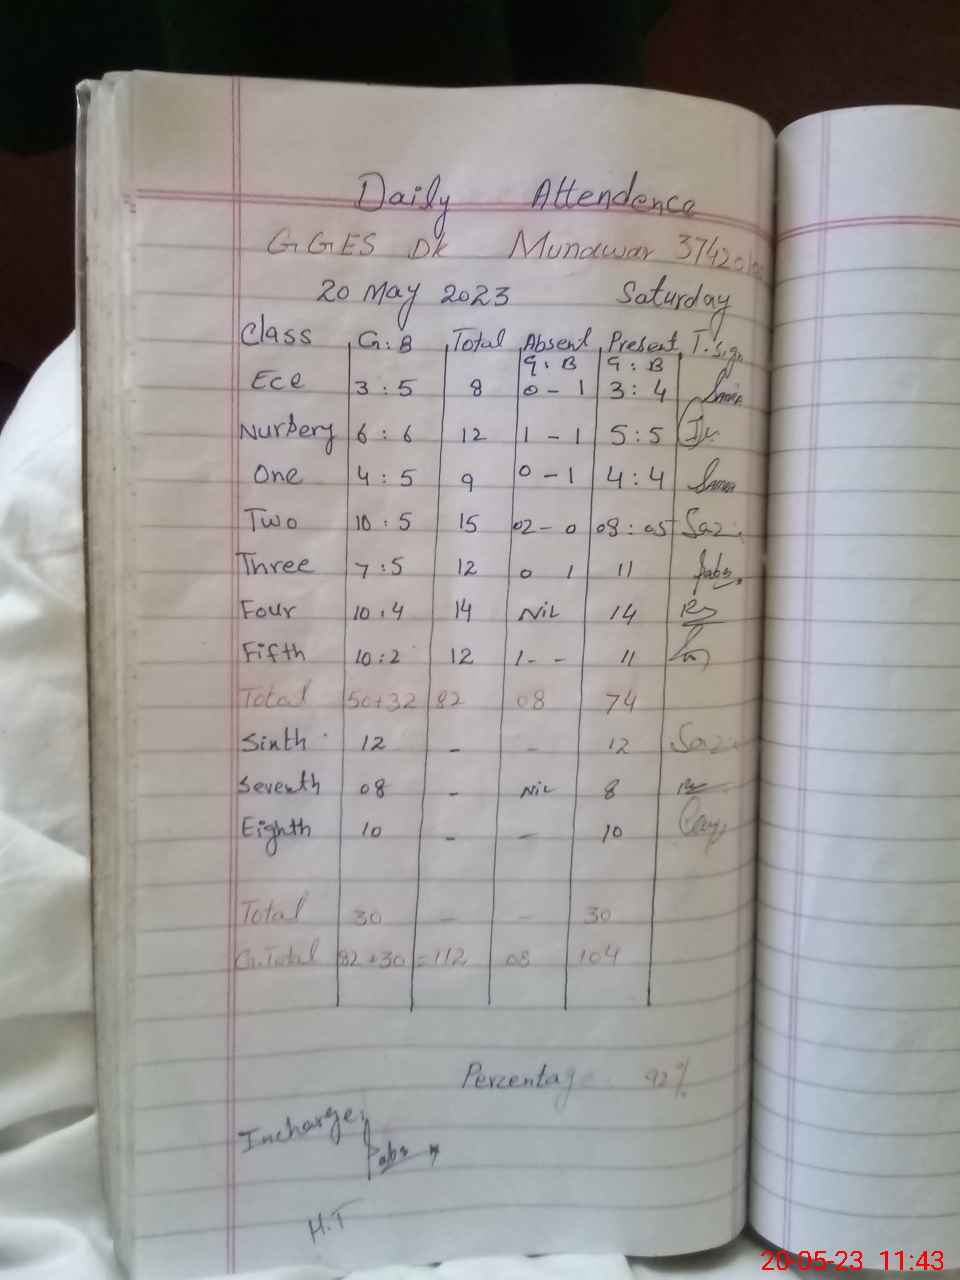 Daily Attendence
GGES Dk Munawar 37420
20 May 2023 Saturday
Class G:B Total Absent Present T.Sign
G:B G:B
Ece 3:5 8 0-1 3:4
Nursery 6:6 12 1-1 5:5
One 4:5 9 0-1 4:4
Two 10:5 15 02-0 08:05 Saz
Three 7:5 12 0 1 11
Four 10:4 14 Nil 14
Fifth 10:2 12 1-- 11
Total 50+32 82 08 74
Sinth 12 - - 12 Saz
Seventh 08 - Nil 8
Eighth 10 - - 10
Total 30 - - 30
G.Total 82+30 =112 08 104
Percentag 92%
Incharge
H.T
20-05-23 11:43